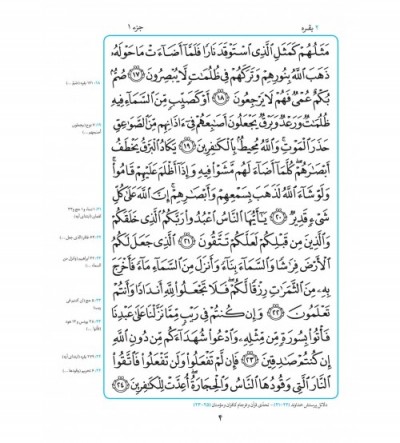 ۲ بقره
جزء ۱
مَثَلُهُمْ كَمَثَلِ الَّذِی اسْتَوْقَدَ نَارًا فَلَمَّآ أَضَآءَتْ مَا حَوْلَهُ
ذَهَبَ اللَّهُ بِنُورِهِمْ وَتَرَكَهُمْ فِی ظُلُمَٰتٍ لَّا یُبْصِرُونَ ﴿۱۷﴾ صُمٌّ
بُكْمٌ عُمْیٌ فَهُمْ لَا یَرْجِعُونَ ﴿۱۸﴾ أَوْ كَصَیِّبٍ مِّنَ السَّمَآءِ فِیهِ
ظُلُمَٰتٌ وَرَعْدٌ وَبَرْقٌ یَجْعَلُونَ أَصَٰبِعَهُمْ فِیٓ ءَاذَانِهِم مِّنَ الصَّوَٰعِقِ
حَذَرَ الْمَوْتِ وَاللَّهُ مُحِیطٌ بِالْكَٰفِرِینَ ﴿۱۹﴾ یَكَادُ الْبَرْقُ یَخْطَفُ
أَبْصَٰرَهُمْ كُلَّمَآ أَضَآءَ لَهُم مَّشَوْا فِیهِ وَإِذَآ أَظْلَمَ عَلَیْهِمْ قَامُوا
وَلَوْ شَآءَ اللَّهُ لَذَهَبَ بِسَمْعِهِمْ وَأَبْصَٰرِهِمْ إِنَّ اللَّهَ عَلَىٰ كُلِّ
شَیْءٍ قَدِیرٌ ﴿۲۰﴾ یَٰٓأَیُّهَا النَّاسُ اعْبُدُوا رَبَّكُمُ الَّذِی خَلَقَكُمْ
وَالَّذِینَ مِن قَبْلِكُمْ لَعَلَّكُمْ تَتَّقُونَ ﴿۲۱﴾ الَّذِی جَعَلَ لَكُمُ
الْأَرْضَ فِرَٰشًا وَالسَّمَآءَ بِنَآءً وَأَنزَلَ مِنَ السَّمَآءِ مَآءً فَأَخْرَجَ
بِهِ مِنَ الثَّمَرَٰتِ رِزْقًا لَّكُمْ فَلَا تَجْعَلُوا لِلَّهِ أَندَادًا وَأَنتُمْ
تَعْلَمُونَ ﴿۲۲﴾ وَإِن كُنتُمْ فِی رَیْبٍ مِّمَّا نَزَّلْنَا عَلَىٰ عَبْدِنَا
فَأْتُوا بِسُورَةٍ مِّن مِّثْلِهِ وَادْعُوا شُهَدَآءَكُم مِّن دُونِ اللَّهِ
إِن كُنتُمْ صَٰدِقِینَ ﴿۲۳﴾ فَإِن لَّمْ تَفْعَلُوا وَلَن تَفْعَلُوا فَاتَّقُوا
النَّارَ الَّتِی وَقُودُهَا النَّاسُ وَالْحِجَارَةُ أُعِدَّتْ لِلْكَٰفِرِینَ ﴿۲۴﴾
۴